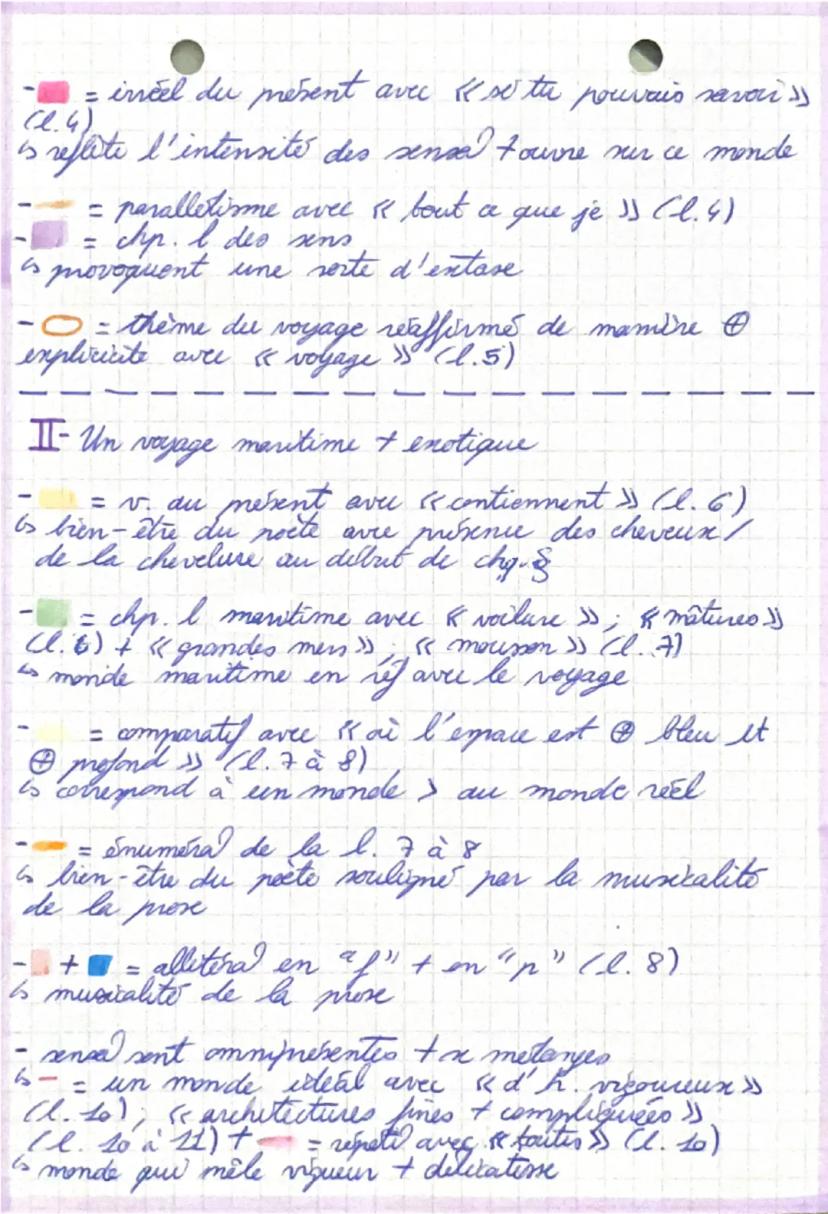 - = irréel du présent avec « si tu pouvais savoir »
(l.4)
↳ reflète l'intensité des sensa⁾ + ouvre sur ce monde
- = parallélisme avec « tout ce que je » (l.4)
- = chp. l des sens
↳ provoquent une sorte d'extase
- = thème du voyage réaffirmé de manière ⊕
explicite avec « voyage » (l.5)
II- Un voyage maritime + exotique
- = v. au présent avec « contiennent » (l.6)
↳ bien-être du poète avec présence des cheveux/
de la chevelure au début de chq. §
- = chp. l maritime avec « voilure » ; « mâtures »
(l.6) + « grandes mers » ; « mousson » (l.7)
↳ monde maritime en réf avec le voyage
- = comparatif avec « où l'espace est ⊕ bleu et
⊕ profond » (l.7 à 8)
↳ correspond à un monde > au monde réel
- = énuméra⁾ de la l. 7 à 8
↳ bien-être du poète souligné par la musicalité
de la prose
- + = allitéra⁾ en "f" + en "p" (l.8)
↳ musicalité de la prose
- sensa⁾ sont omniprésentes + se mélanges
↳ - = un monde idéal avec « d'h. vigoureux »
(l.10) ; « architectures fines + compliquées »
(l.10 à 11) + = répéti⁾ avec « toutes » (l.10)
↳ monde qui mêle vigueur + délicatesse